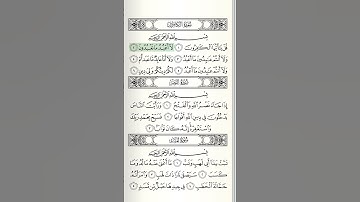 سورة الكافرون
بسم الله الرحمن الرحيم
قل يأيها الكفرون ١ لا أعبد ما تعبدون ٢
ولا أنتم عبدون ما أعبد ٣ ولا أنا عابد ما عبدتم ٤
ولا أنتم عبدون ما أعبد ٥ لكم دينكم ولي دين ٦
سورة النصر
بسم الله الرحمن الرحيم
إذا جاء نصر الله والفتح ١ ورأيت الناس
يدخلون في دين الله أفواجا ٢ فسبح بحمد ربك
واستغفره إنه كان توابا ٣
سورة المسد
بسم الله الرحمن الرحيم
تبت يدا أبي لهب وتب ١ ما أغنى عنه ماله وما
كسب ٢ سيصلى نارا ذات لهب ٣ وامرأته
حمالة الحطب ٤ في جيدها حبل من مسد ٥